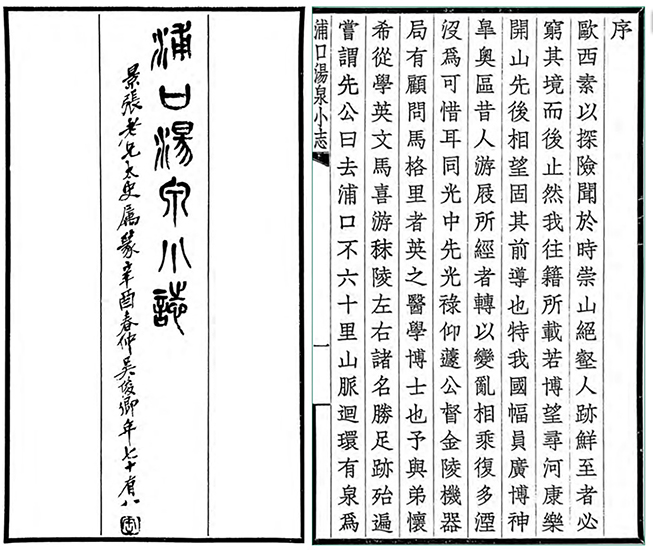 浦口湯泉小誌
景張老兄太史屬篆辛酉春仲吳俊卿年七十有八
序
歐西素以探險聞於時崇山絕壑人跡鮮至者必
窮其境而後止然我往籍所載若博望尋河康樂
開山先後相望固其前導也特我國幅員廣博神
皐奧區昔人游屐所經者轉以變亂相乘復多湮
沒為可惜耳同光中先光祿仰蘧公督金陵機器
局有顧問馬格里者英之醫學博士也予與弟懷
希從學英文馬喜游秣陵左右諸名勝足跡殆遍
嘗謂先公曰去浦口不六十里山脈迴環有泉爲
浦口湯泉小志
一